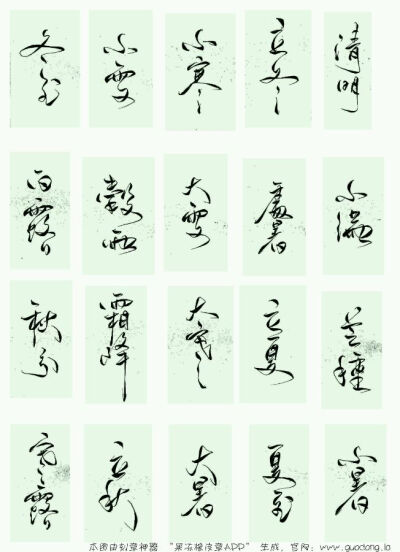 冬至
小雪
小寒
立冬
清明
白露
穀雨
大雪
處暑
小滿
秋分
霜降
大寒
立夏
芒種
寒露
立秋
大暑
夏至
小暑
本图由刻章神器 “果冻橡皮章APP” 生成，官网：www.guodong.la